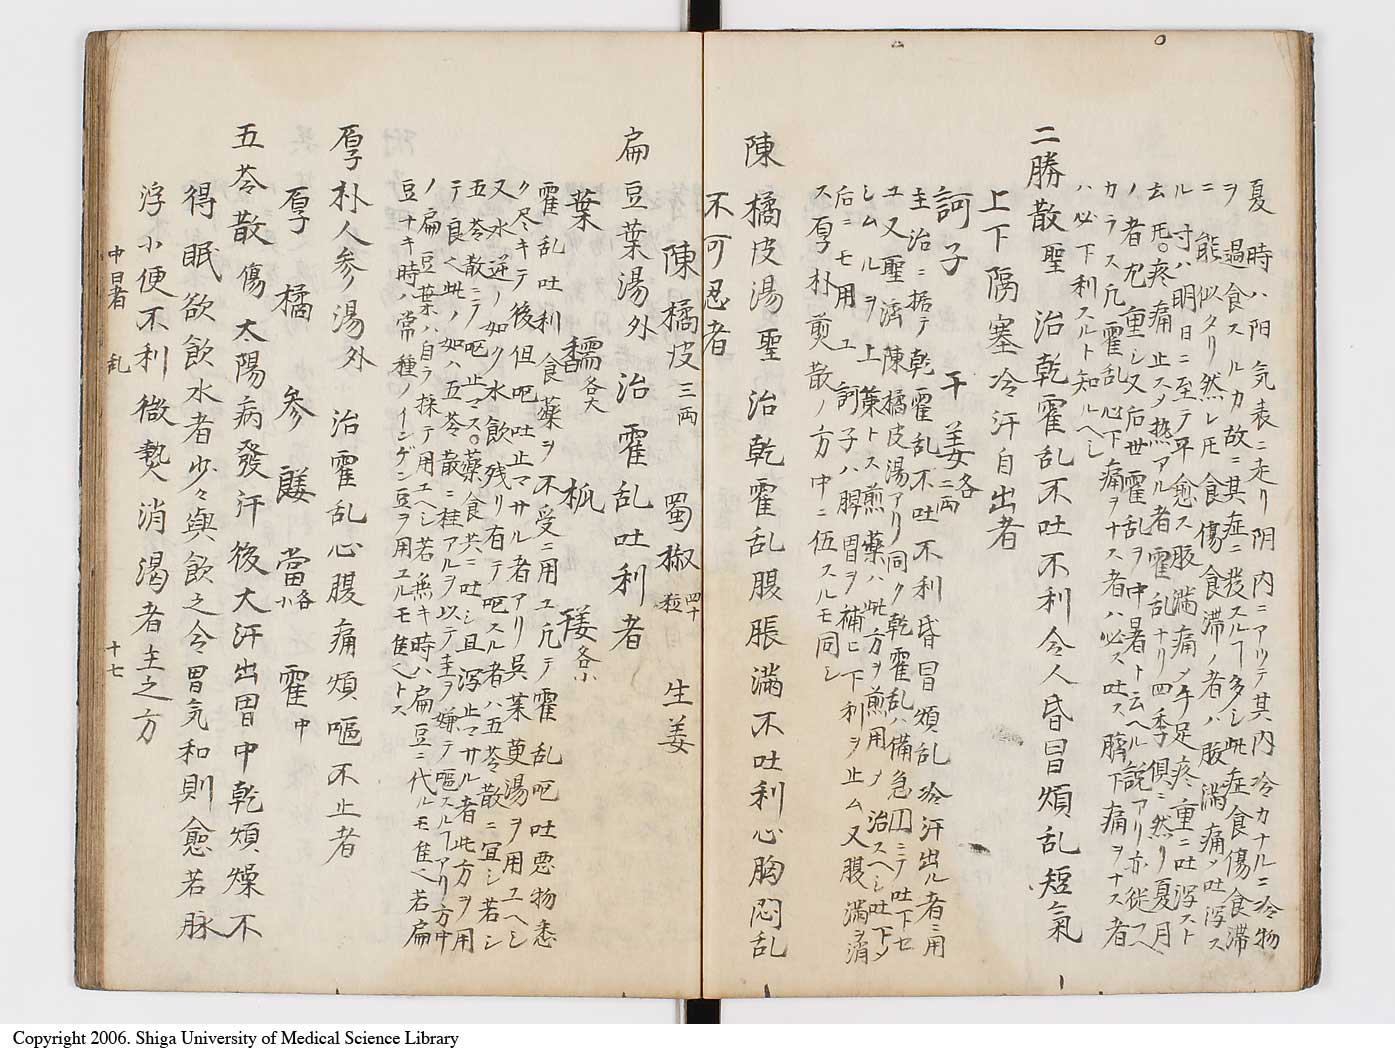 夏時ハ阳気表ニ走リ阴内ニアリテ其内冷カナルニ冷物
ヲ過食スルカ故ニ其症ニ発スルヿ多シ此症食傷食滞
ニ能似タリ然レ𪜈食傷食滞ノ者ハ腹満痛〆吐泻ス
ル寸ハ明日ニ至テ平愈ス腹満痛〆手足疼重ニ吐泻スト
云𪜈疼痛止ス〆热アル者霍乱ナリ四季俱ニ然リ夏月
ノ者尤重シ又后世霍乱ヲ中暑ト云ヘル説アリ亦従フヘ
カラス凡霍乱心下痛ヲナス者ハ必ス吐ス臍下痛ヲナス者
ハ必下利スルト知ルヘシ
二勝散聖治乾霍乱不吐不利令人昏冒煩乱短氣
上下隔塞冷汗自出者
訶子干姜各二両
主治ニ據テ乾霍乱不吐不利昏冒煩乱冷汗出ル者ニ用
ユ又聖済陳橘皮湯アリ同ク乾霍乱ハ備急円ニテ吐下セ
シムルヲ上策トス煎藥ハ此方ヲ煎用〆治スヘシ吐下〆
后ニモ用ユ訶子ハ脾胃ヲ補ヒ下利ヲ止ム又腹満ヲ消
ス厚朴煎散ノ方中ニ伍スルモ同シ
陳橘皮湯聖治乾霍乱腹脹満不吐利心胸悶乱
不可忍者
陳橘皮三両蜀椒四十粒生姜
扁豆葉湯外治霍乱吐利者
葉 𮮐各大 㭆 䕷各小
霍乱吐利食藥ヲ不受ニ用ユ凡テ霍乱呕吐悪物悉
ク尽キテ後但呕吐止マサル者アリ呉茱萸湯ヲ用ユヘシ
又水逆ノ如ク水飲残リ有テ呕スル者ハ五苓散ニ宜シ若シ
五苓散ニテ呕止マス藥食共ニ吐シ且泻止マサル者此方ヲ用
テ良シ此ノ如ハ五苓散ニ桂アルヲ以テ圭ヲ嫌テ嘔スルヿアリ方中
ノ扁豆葉ハ自ラ採テ用ユヘシ若無キ時ハ扁豆ニ代ルモ隹ヘ若扁
豆ナキ時ハ常種ノインゲン豆ヲ用ユルモ隹ヘトス
厚朴人参湯外治霍乱心腹痛煩嘔不止者
厚橘参䕷當各小霍中
五苓散傷太陽病發汗後大汗出胃中乾煩燥不
得眠欲飲水者少々與飲之令胃気和則愈若脉
浮小便不利微熱消渇者主之方
中暑 乱 十七
Copyright 2006. Shiga University of Medical Science Library